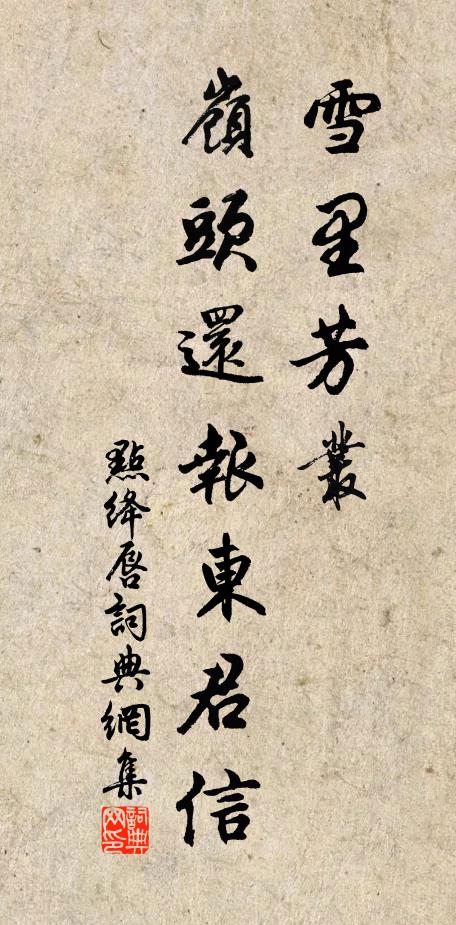 雪里芳叢
嶺頭還報東君信
點絳唇詞典網集
詞典网印